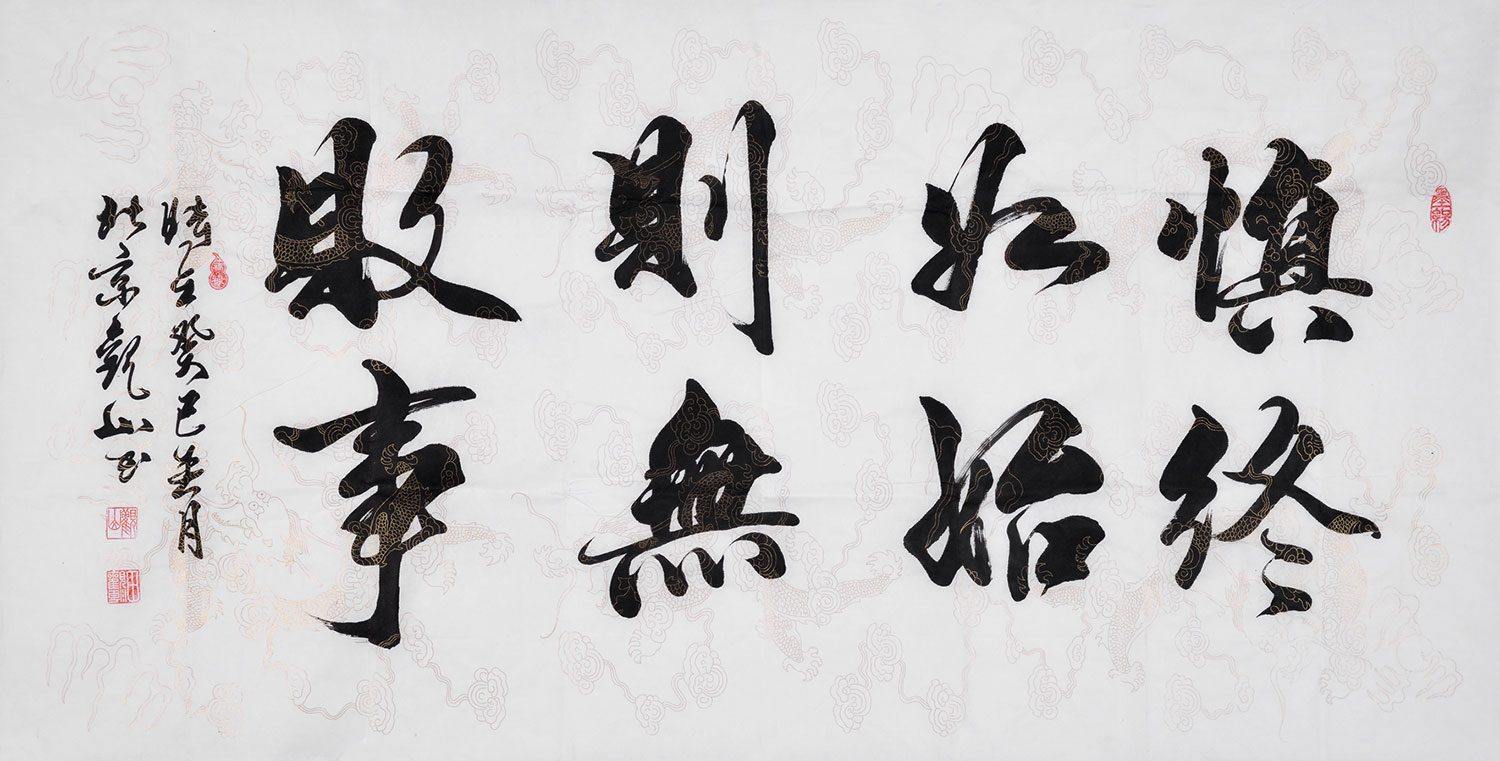 慎終
如始
則無
敗事
時在癸巳春月
北京觀山书